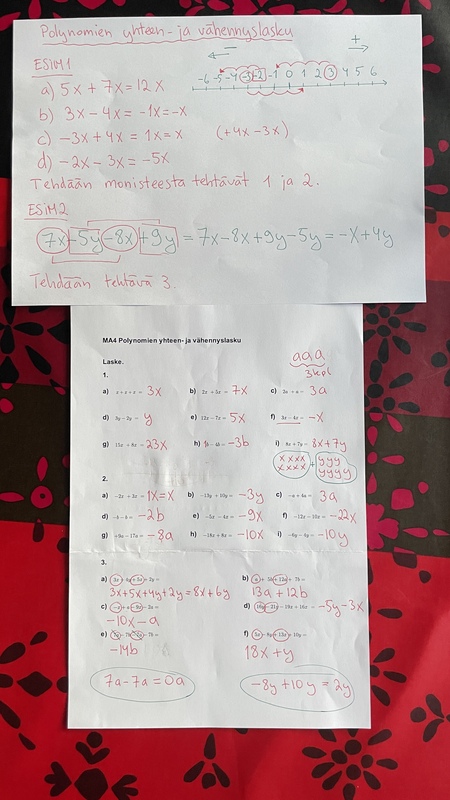 Polynomien yhteen- ja vähennyslasku
ESIM1
− +
-6 -5 -4 -3 -2 -1 0 1 2 3 4 5 6
a) 5x + 7x = 12x
b) 3x - 4x = -1x = -x
c) -3x + 4x = 1x = x (+4x - 3x)
d) -2x - 3x = -5x
Tehdään monisteesta tehtävät 1 ja 2.
ESIM2
7x - 5y - 8x + 9y = 7x - 8x + 9y - 5y = -x + 4y
Tehdään tehtävä 3.
MA4 Polynomien yhteen- ja vähennyslasku
Laske.
aaa
3kpl
1.
a) x + x + x = 3x b) 2x + 5x = 7x c) 2a + a = 3a
d) 3y - 2y = y e) 12x - 7x = 5x f) 3x - 4x = -x
g) 15x + 8x = 23x h) - 4b = -3b i) 8x + 7y = 8x + 7y
xxxx + yyy
xxxx yyyy
2.
a) -2x + 3x = 1x = x b) -13y + 10y = -3y c) -a + 4a = 3a
d) -b - b = -2b e) -5x - 4x = -9x f) -12x - 10x = -22x
g) +9a - 17a = -8a h) -18x + 8x = -10x i) -6y - 4y = -10y
3.
a) 3x + 4y + 5x + 2y = b) a + 5b + 12a + 7b =
3x + 5x + 4y + 2y = 8x + 6y 13a + 12b
c) -x + a - 9x - 2a = d) 16y - 21y - 19x + 16x = -5y - 3x
-10x - a
e) - 7b - 7b = f) 5x - 8y + 13x + 10y =
-14b 18x + y
7a - 7a = 0a -8y + 10y = 2y